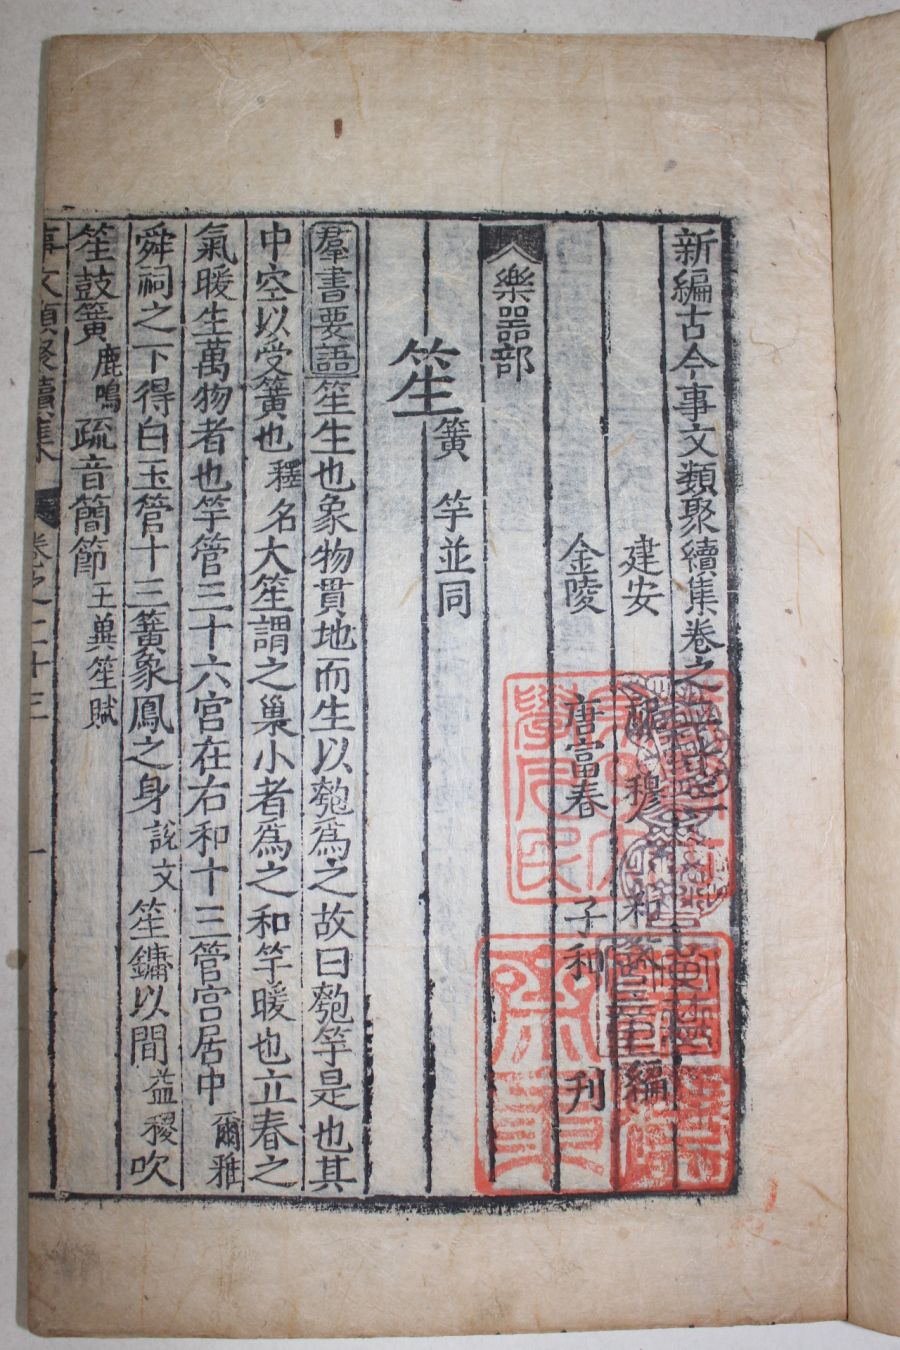 新編古今事文類聚續集卷之二十三
建安 祝 穆 和父 編
金陵 唐富春 子和 刊
樂器部
笙 簧 竽並同
羣書要語 笙生也象物貫地而生以匏爲之故曰匏竽是也其
中空以受簧也釋名大笙謂之巢小者爲之和竽暖也立春之
氣暖生萬物者也竽管三十六宮在右和十三管宮居中爾雅
舜祠之下得白玉管十三簧象鳳之身說文笙鏞以間益稷吹
笙鼓簧鹿鳴疏音簡節王㒷笙賦
事文類聚續集 卷之二十三 一